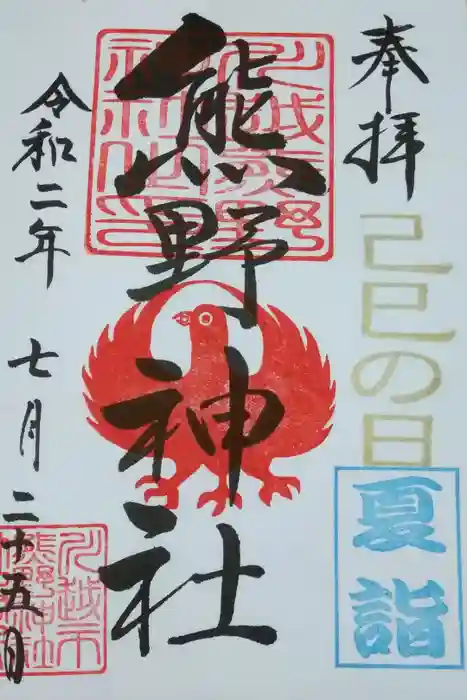 奉拝
己巳の日
夏詣
熊野神社
令和二年
七月二十五日
川越市
熊野神社